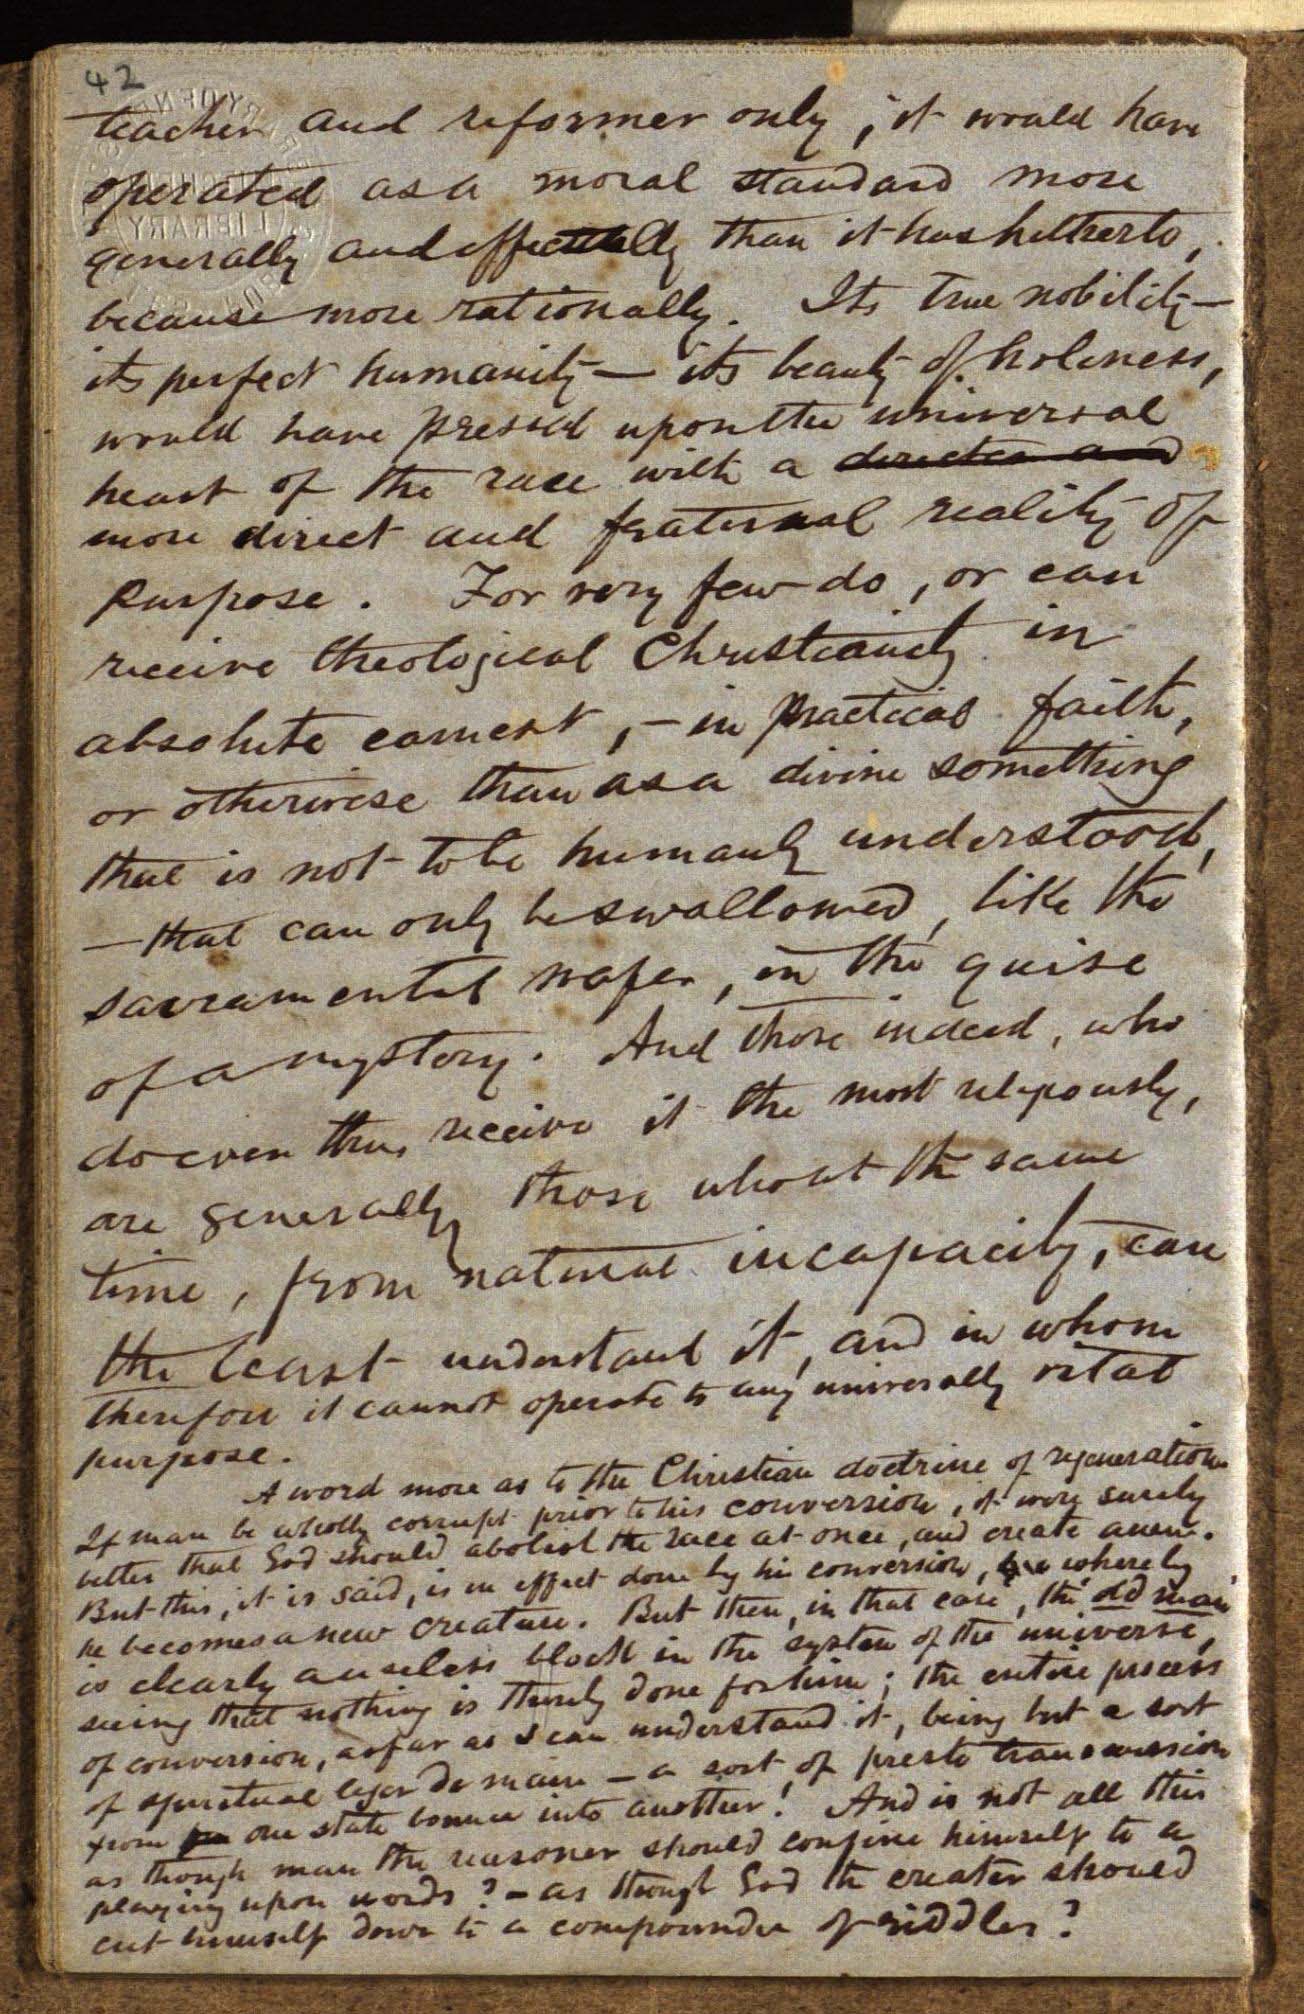 42
teacher and reformer only; it would have
operated as a moral standard more
generally and effectually than it has hitherto,
because more rationally. Its true nobility—
its perfect humanity— its beauty of holiness,
would have pressed upon the universal
heart of the race with a directer and
more direct and fraternal reality of
purpose. For very few do, or can
receive theological Christianity in
absolute earnest, — in practical faith,
or otherwise than as a divine something
that is not to be humanly understood,
— that can only be swallowed, like the
sacramental wafer, in the guise
of a mystery. And those indeed, who
do even thus receive it the most religiously,
are generally those who at the same
time, from natural incapacity, can
the least understand it, and in whom
therefore it cannot operate to any universally vital
purpose.
A word more as to the Christian doctrine of regeneration
If man be wholly corrupt prior to his conversion, it were surely
better that God should abolish the race at once, and create anew.
But this, it is said, is in effect done by his conversion, whereby
he becomes a new creature. But then, in that case, the old man
is clearly a useless block in the system of the universe,
seeing that nothing is thereby done for him; the entire process
of conversion, as far as I can understand it, being but a sort
of spiritual leger de main — a sort of presto transmission
from one state bounce into another! And is not all this
as though man the reasoner should confine himself to a
playing upon words? — as though God the creater should
cut himself down to a compounder of riddles?